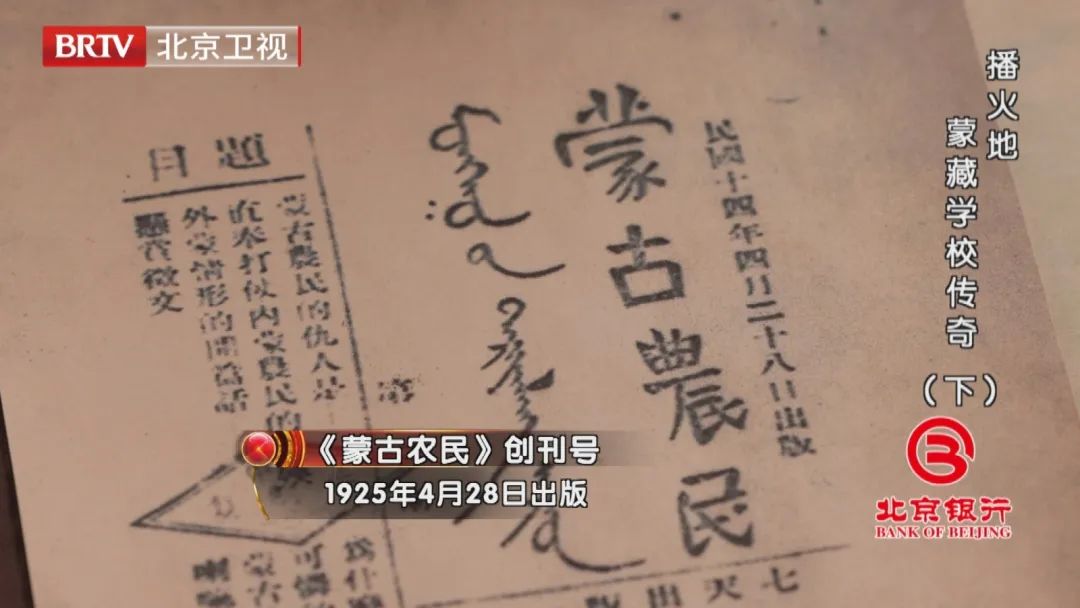 BRTV 北京卫视
播火地
蒙藏学校传奇
（下）
民國十四年四月二十八日出版
蒙古農民
題目
蒙古農民的仇人是
直奉打仗內蒙農民的
外蒙情形的閒話
懸賞徵文
七天出版
可憐的
蒙古
《蒙古农民》创刊号
1925年4月28日出版
北京银行
BANK OF BEIJING